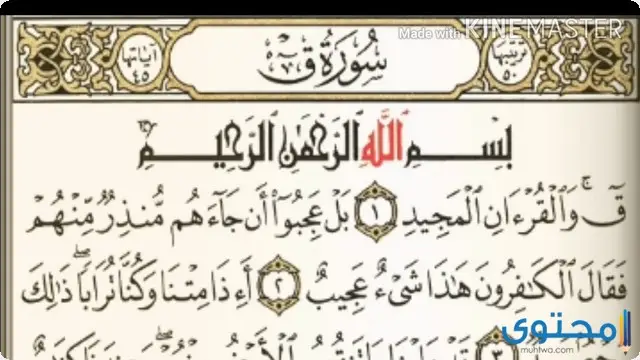 Made with KINEMASTER
ترتيبها ٥٠
سُورَةُ قٓ
آياتها ٤٥
بِسۡمِ ٱللَّهِ ٱلرَّحۡمَٰنِ ٱلرَّحِيمِ
قٓۚ وَٱلۡقُرۡءَانِ ٱلۡمَجِيدِ ١ بَلۡ عَجِبُوٓاْ أَن جَآءَهُم مُّنذِرٞ مِّنۡهُمۡ
فَقَالَ ٱلۡكَٰفِرُونَ هَٰذَا شَيۡءٌ عَجِيبٌ ٢ أَءِذَا مِتۡنَا وَكُنَّا تُرَابٗاۖ ذَٰلِكَ
محتوى
muhtwa.com